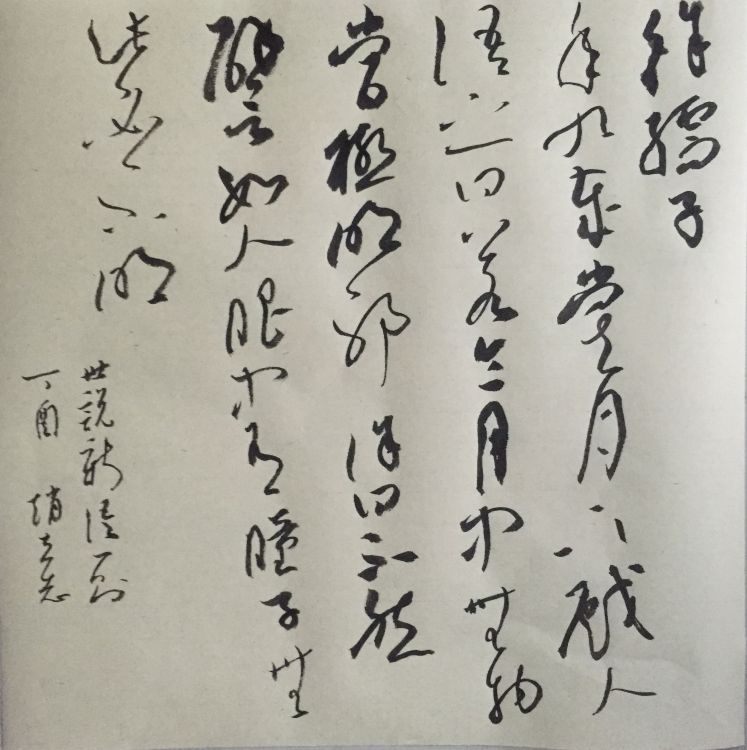 徐孺子
年九歲嘗月下戲人
語之曰若令月中無物
當極明邪徐曰不然
譬如人眼中有瞳子無
此必不明
世說新語一則
丁酉 趙